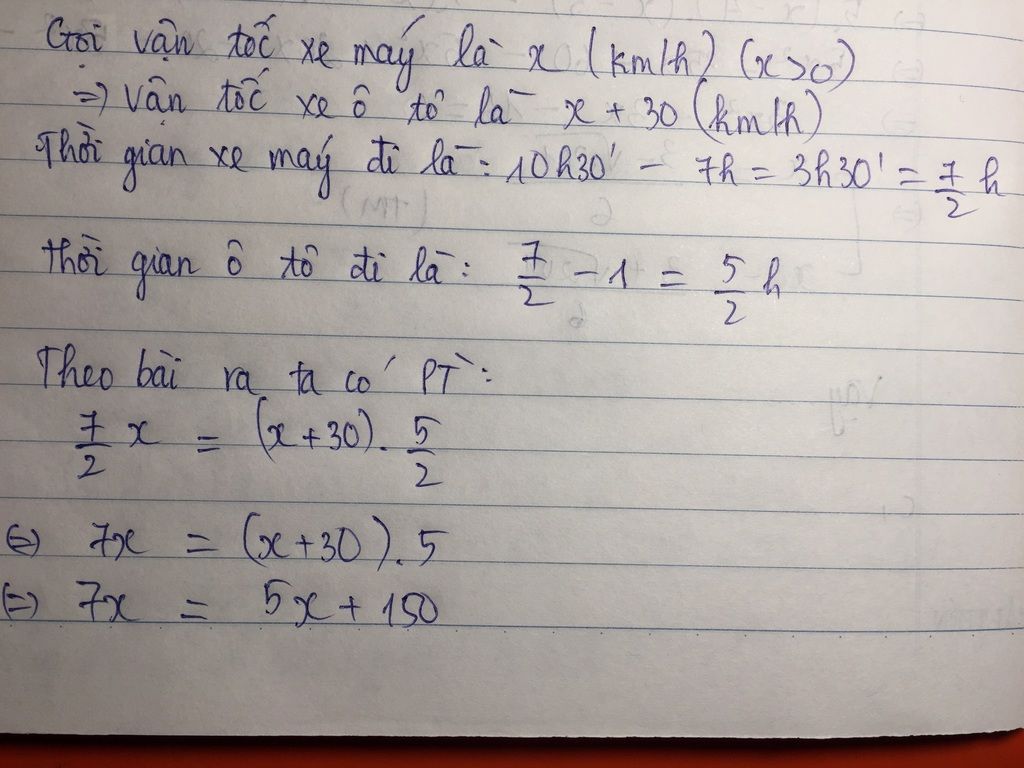 Gọi vận tốc xe máy là x (km/h) (x>0)
=> Vận tốc xe ô tô là x + 30 (km/h)
Thời gian xe máy đi là: 10h30' - 7h = 3h30' = 7/2 h
Thời gian ô tô đi là: 7/2 - 1 = 5/2 h
Theo bài ra ta có PT:
7/2 x = (x+30). 5/2
<=> 7x = (x+30).5
<=> 7x = 5x + 150